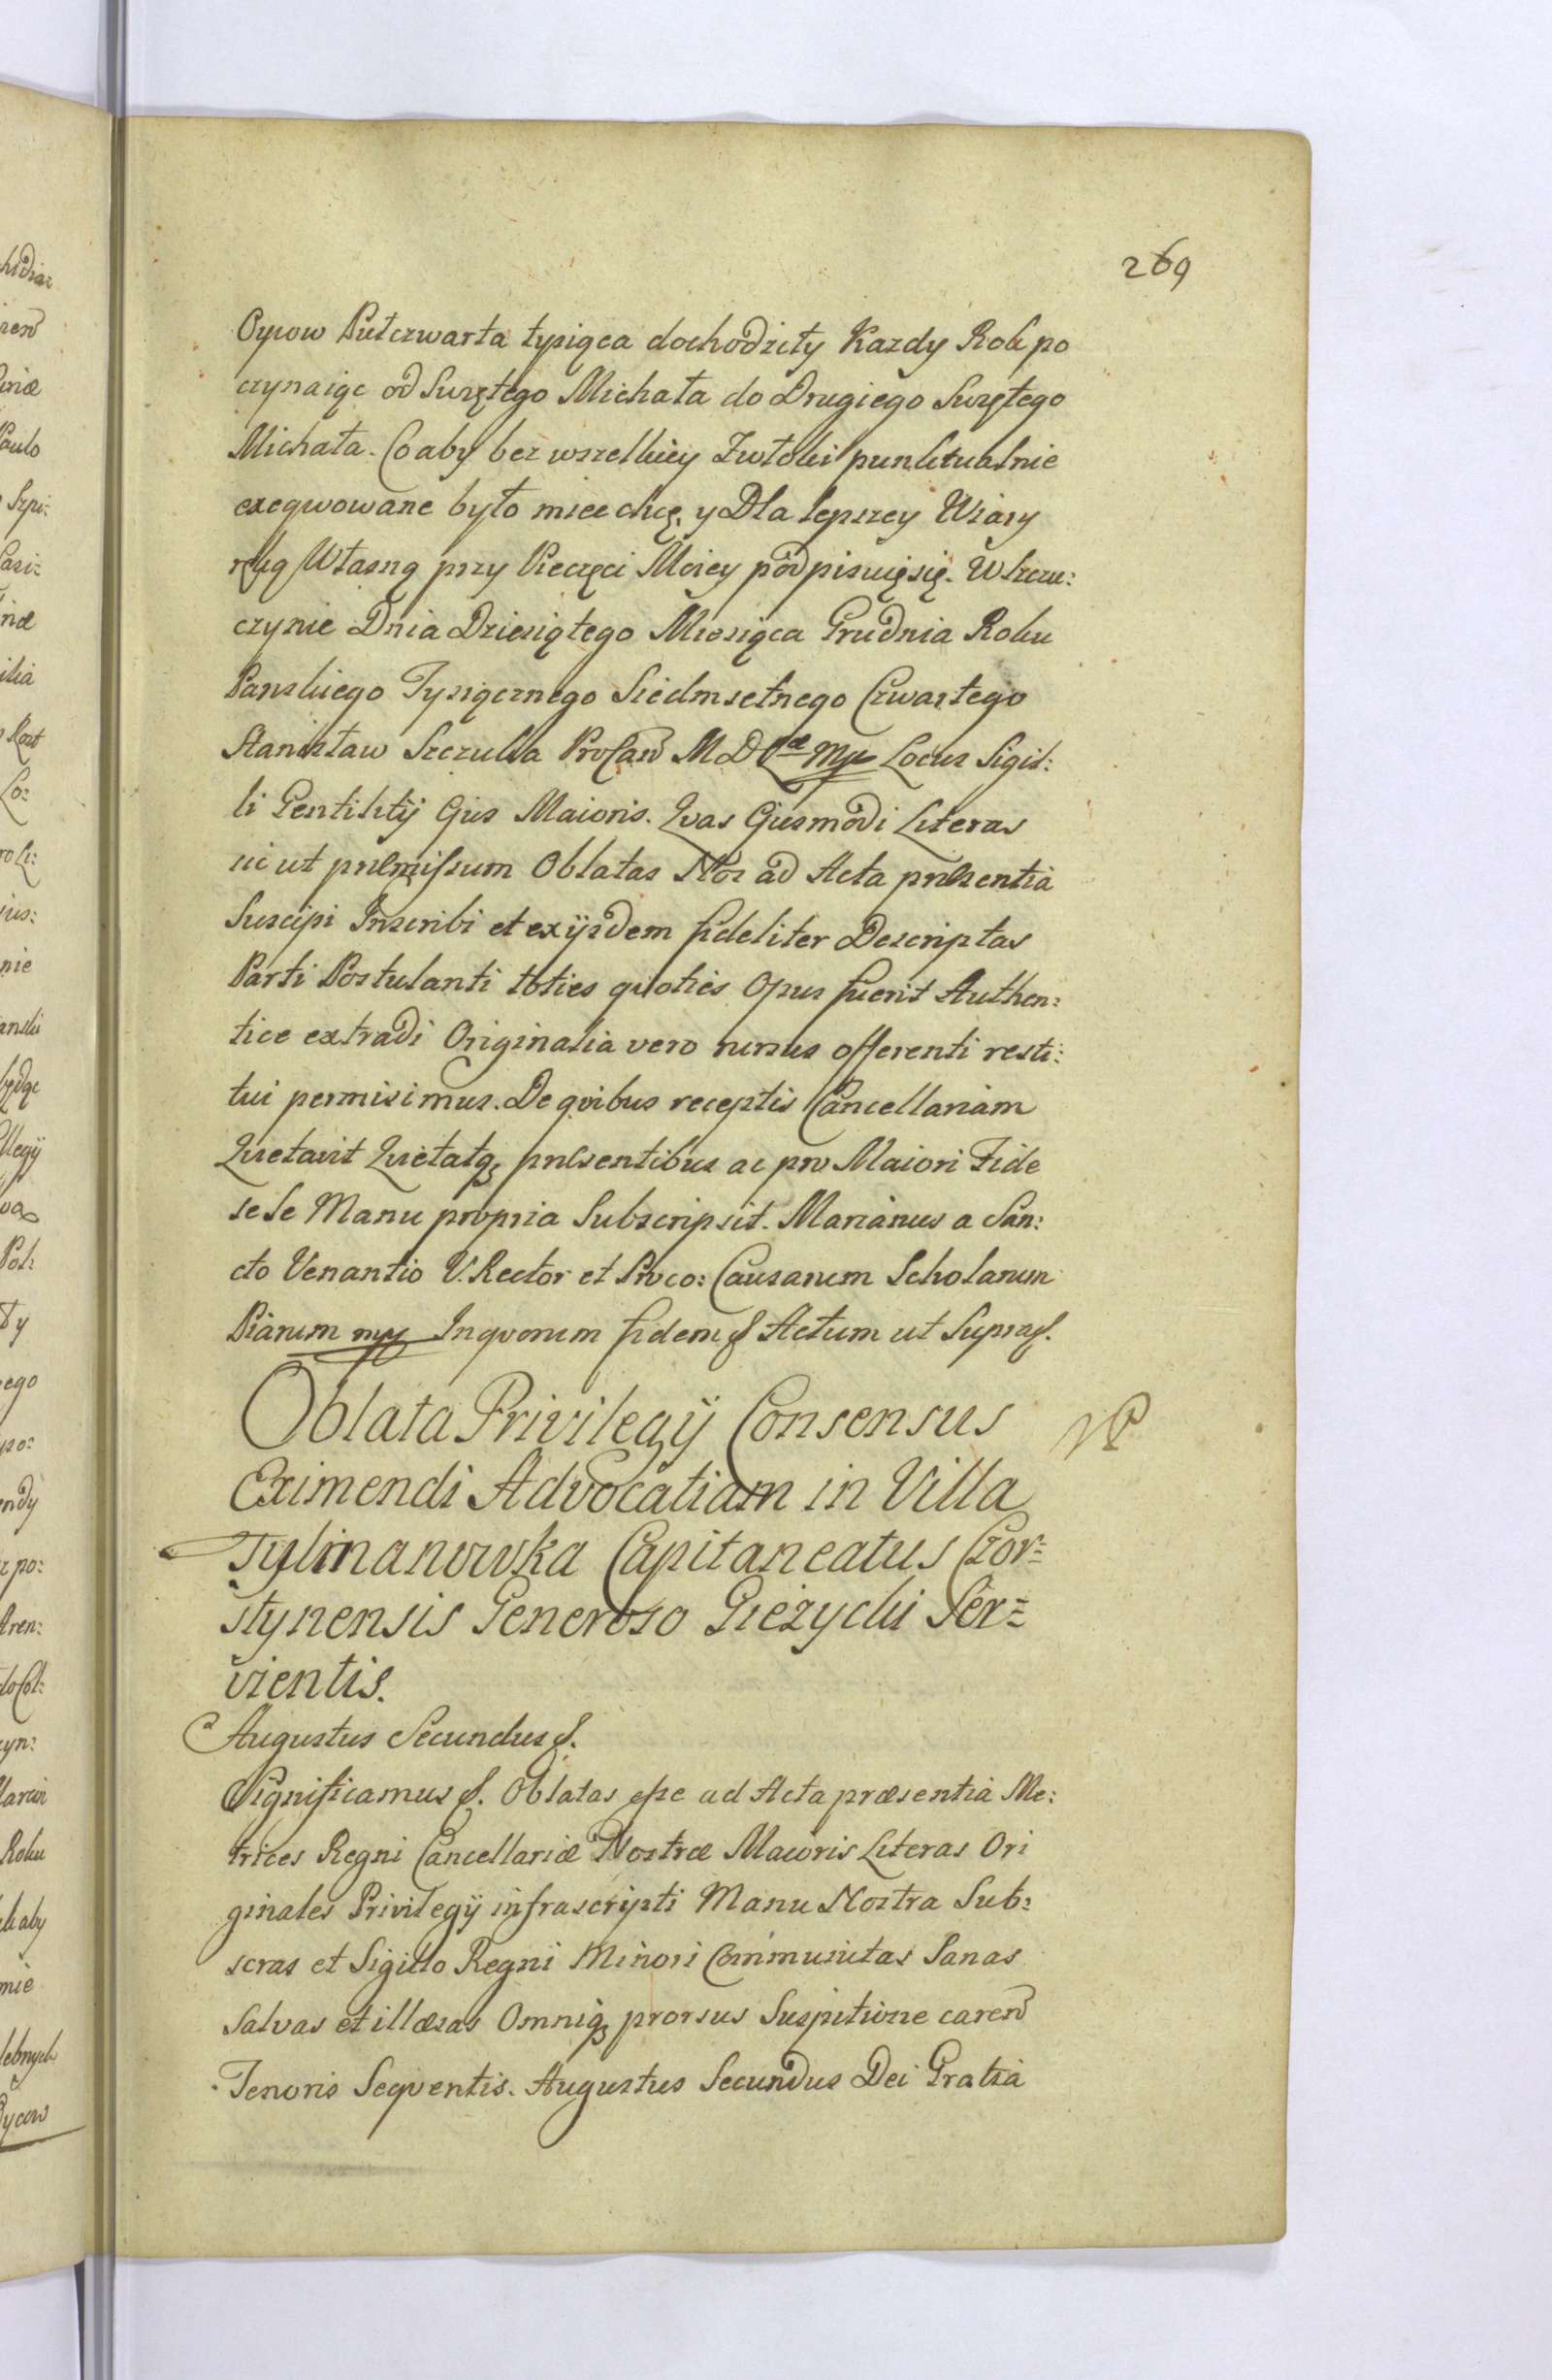 269
Oycow Pułczwarta tysiąca dochodziły Kazdy Rok po
czynaiąc od Swiętego Michała do Drugiego Swiętego
Michała. Co aby bez wszelkiey Zwłoki punktualnie
exeqwowane było miec chcę, y Dla lepszey Wiary
ręką Własną przy Pieczęci Moiey podpisuięsię. W Szczu:
czynie Dnia Dziesiątego Miesiąca Grudnia Roku
Panskiego Tysiącznego Siedmsetnego Czwartego
Stanisław Szczuka ProCanc M D L mp Locus Sigil:
li Gentilitij Ejus Maioris. Qvas Ejusmodi Literas
uti ut præmissum Oblatas Nos ad Acta præsentia
Suscipi Inscribi et ex ijsdem fideliter Descriptas
Parti Postulanti toties quoties Opus fuerit Authen:
tice extradi Originalia vero rursus offerenti resti:
tui permisimus. De qvibus receptis Cancellariam
Qvietavit Qvietatq præsentibus ac pro Maiori Fide
se Se Manu propria Subscripsit. Marianus a San:
cto Venantio V. Rector et Proco: Causarum Scholarum
Piarum mp In qvorum fidem &. Actum ut Supra &.
Oblata Privilegij Consensus
Eximendi Advocatiam in Villa
Tylmanowka Capitaneatus Czor=
stynensis Generoso Gieżycki Ser=
vientis.
Augustus Secundus &.
Significamus &. Oblatas esse ad Acta præsentia Me:
trices Regni Cancellariæ Nostræ Maioris Literas Ori
ginales Privilegij infrascripti Manu Nostra Sub:
scras et Sigillo Regni Minori Communitas Sanas
Salvas et illæsas Omniq prorsus Suspitione caren
Tenoris Seqventis. Augustus Secundus Dei Gratia